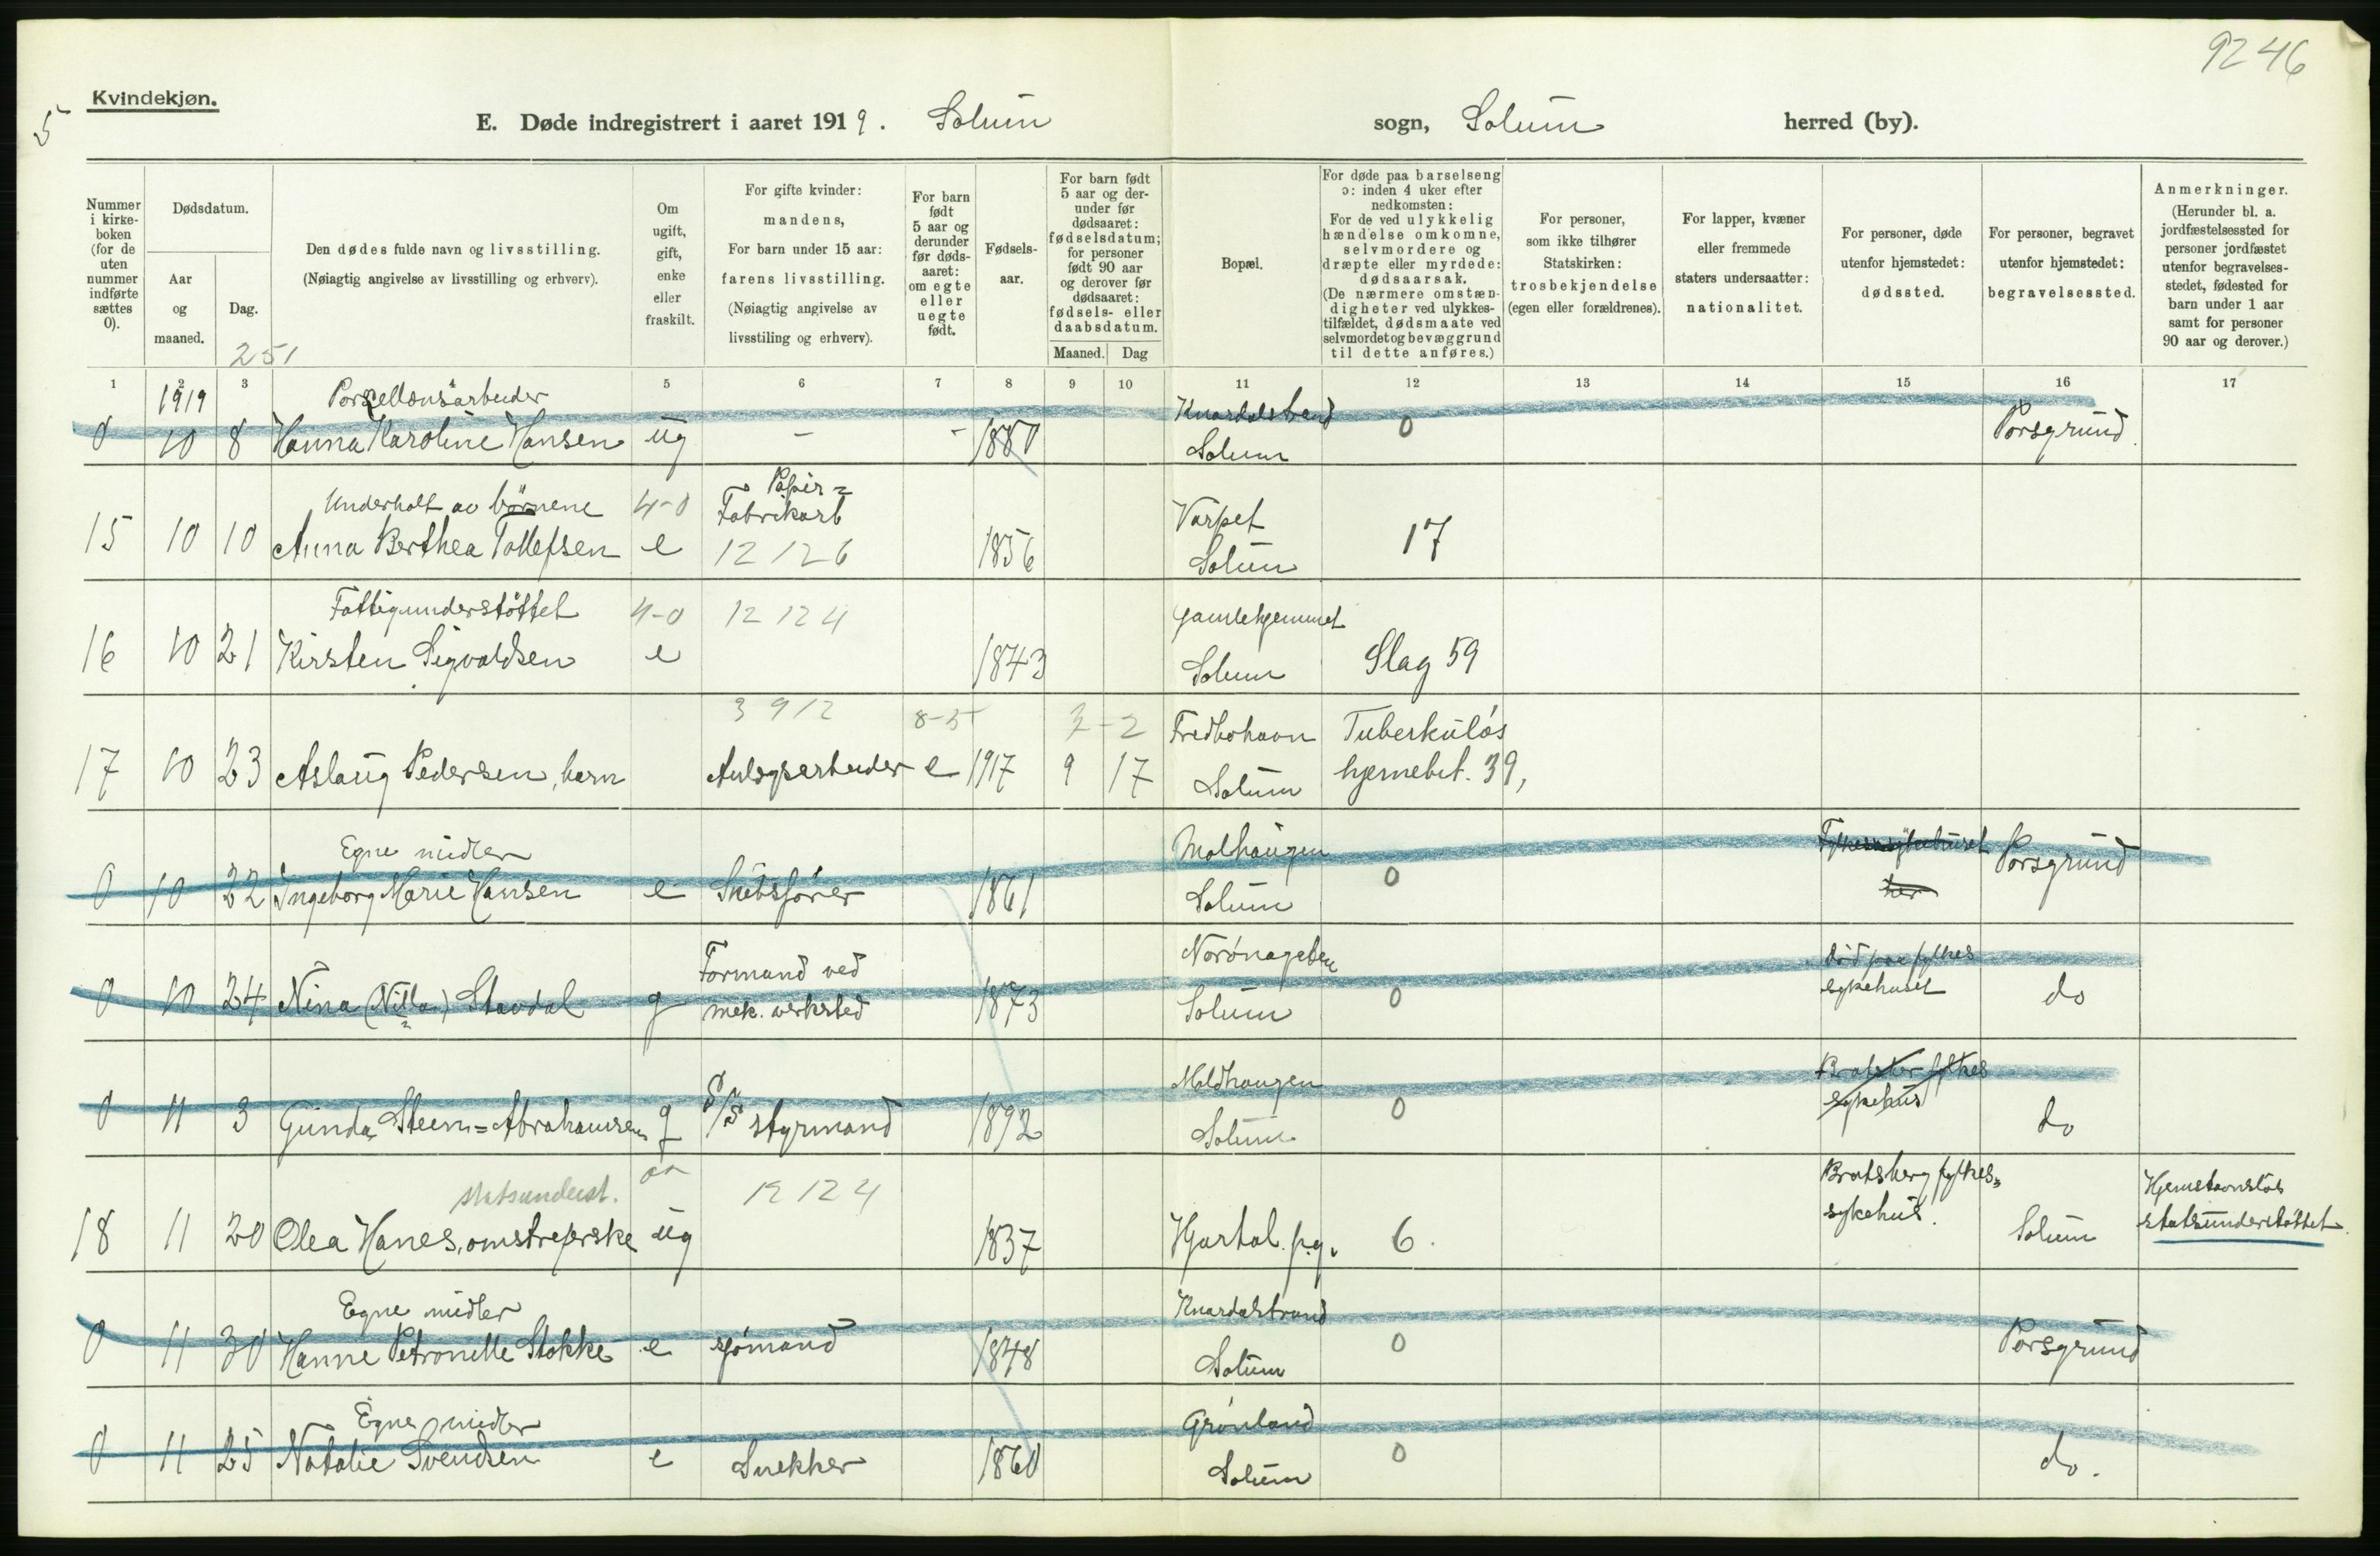 9246
5
Kvindekjøn.
E. Døde indregistrert i aaret 1919. Solum sogn, Solum herred (by).
Nummer i kirke-boken (for de uten nummer indførte sættes 0).
Dødsdatum.
Aar og maaned.
Dag.
251
Den dødes fulde navn og livsstilling.
(Nøiagtig angivelse av livsstilling og erhverv).
Om ugift, gift, enke eller fraskilt.
For gifte kvinder: mandens,
For barn under 15 aar: farens livsstilling.
(Nøiagtig angivelse av livsstiling og erhverv).
For barn født 5 aar og derunder før døds-aaret: om egte eller uegte født.
Fødsels-aar.
For barn født 5 aar og der-under før dødsaaret: fødselsdatum; for personer født 90 aar og derover før dødsaaret: fødsels- eller daabsdatum.
Maaned. Dag
Bopæl.
For døde paa barselseng ɔ: inden 4 uker efter nedkomsten:
For de ved ulykkelig hændelse omkomne, selvmordere og dræpte eller myrdede: dødsaarsak.
(De nærmere omstæn-digheter ved ulykkes-tilfældet, dødsmaate ved selvmordet og bevæggrund til dette anføres.)
For personer, som ikke tilhører Statskirken: trosbekjendelse (egen eller forældrenes).
For lapper, kvæner eller fremmede staters undersaatter: nationalitet.
For personer, døde utenfor hjemstedet: dødssted.
For personer, begravet utenfor hjemstedet: begravelsessted.
Anmerkninger.
(Herunder bl. a. jordfæstelsessted for personer jordfæstet utenfor begravelses-stedet, fødested for barn under 1 aar samt for personer 90 aar og derover.)
1 2 3 5 6 7 8 9 10 11 12 13 14 15 16 17
1919 Porsellonsarbeider Knardalstrand
0 10 8 Hanna Karoline Hansen ug - - 1880 Solum 0 Porsgrund.
Underholt av börnene 4-0 Papir= Fabrikarb Varpet
15 10 10 Anna Berthea Tollefsen e 12 126 1856 Solum 17
Fattigunderstöttet 4-0 12 124 Gamlehjemmet
16 10 21 Kirsten Sigvaldsen e 1843 Solum Slag 59
3 9 12 8-5 3-2 Fredbohavn Tuberkuløs
17 10 23 Aslaug Pedersen, barn Anlegsarbeider e 1917 9 17 Solum hjernebet. 39,
Egne midler Molhaugen Fylkessykehuset
0 10 22 Ingeborg Marie Hansen e Skibsfører 1861 Solum 0 her Porsgrund
Formand ved Norønagaten död paa fylkes
0 10 24 Nina (Nilla) Stavdal g mek. verksted 1873 Solum 0 sykehuset do
Moldhaugen Bratsber fylkes
0 11 3 Gunda Steen=Abrahamsen g S/S styrmand 1892 Solum 0 sykehus do
statsunderst. 12 124 Bratsberg fylkes= Hjemstavnsløs
18 11 20 Olea Hanes, omstreferske ug 1837 Hjartdal. p.g. 6. sykehus. Solum statsunderstøttet.
Egne midler Knardalstrand
0 11 30 Hanne Petronelle Stokke e sjømand 1848 Solum 0 Porsgrund
Egne midler Grønland
0 11 25 Natalie Svendsen e Snekker 1860 Solum 0 do.